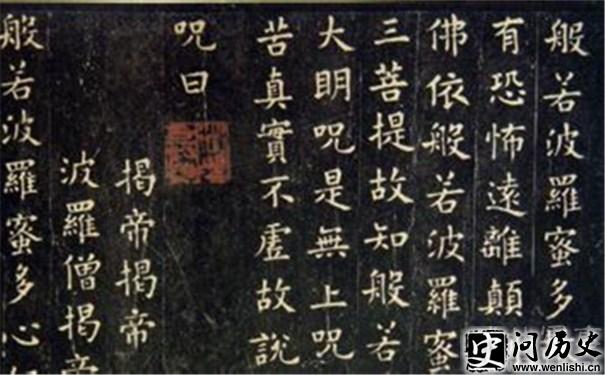 般若波羅蜜多
有恐怖遠離顛
佛依般若波羅蜜
三菩提故知般若
大明咒是無上咒
苦真實不虛故說
咒曰
揭帝揭帝
波羅僧揭帝
般若波羅蜜多心
问历史
www.wenlishi.cn